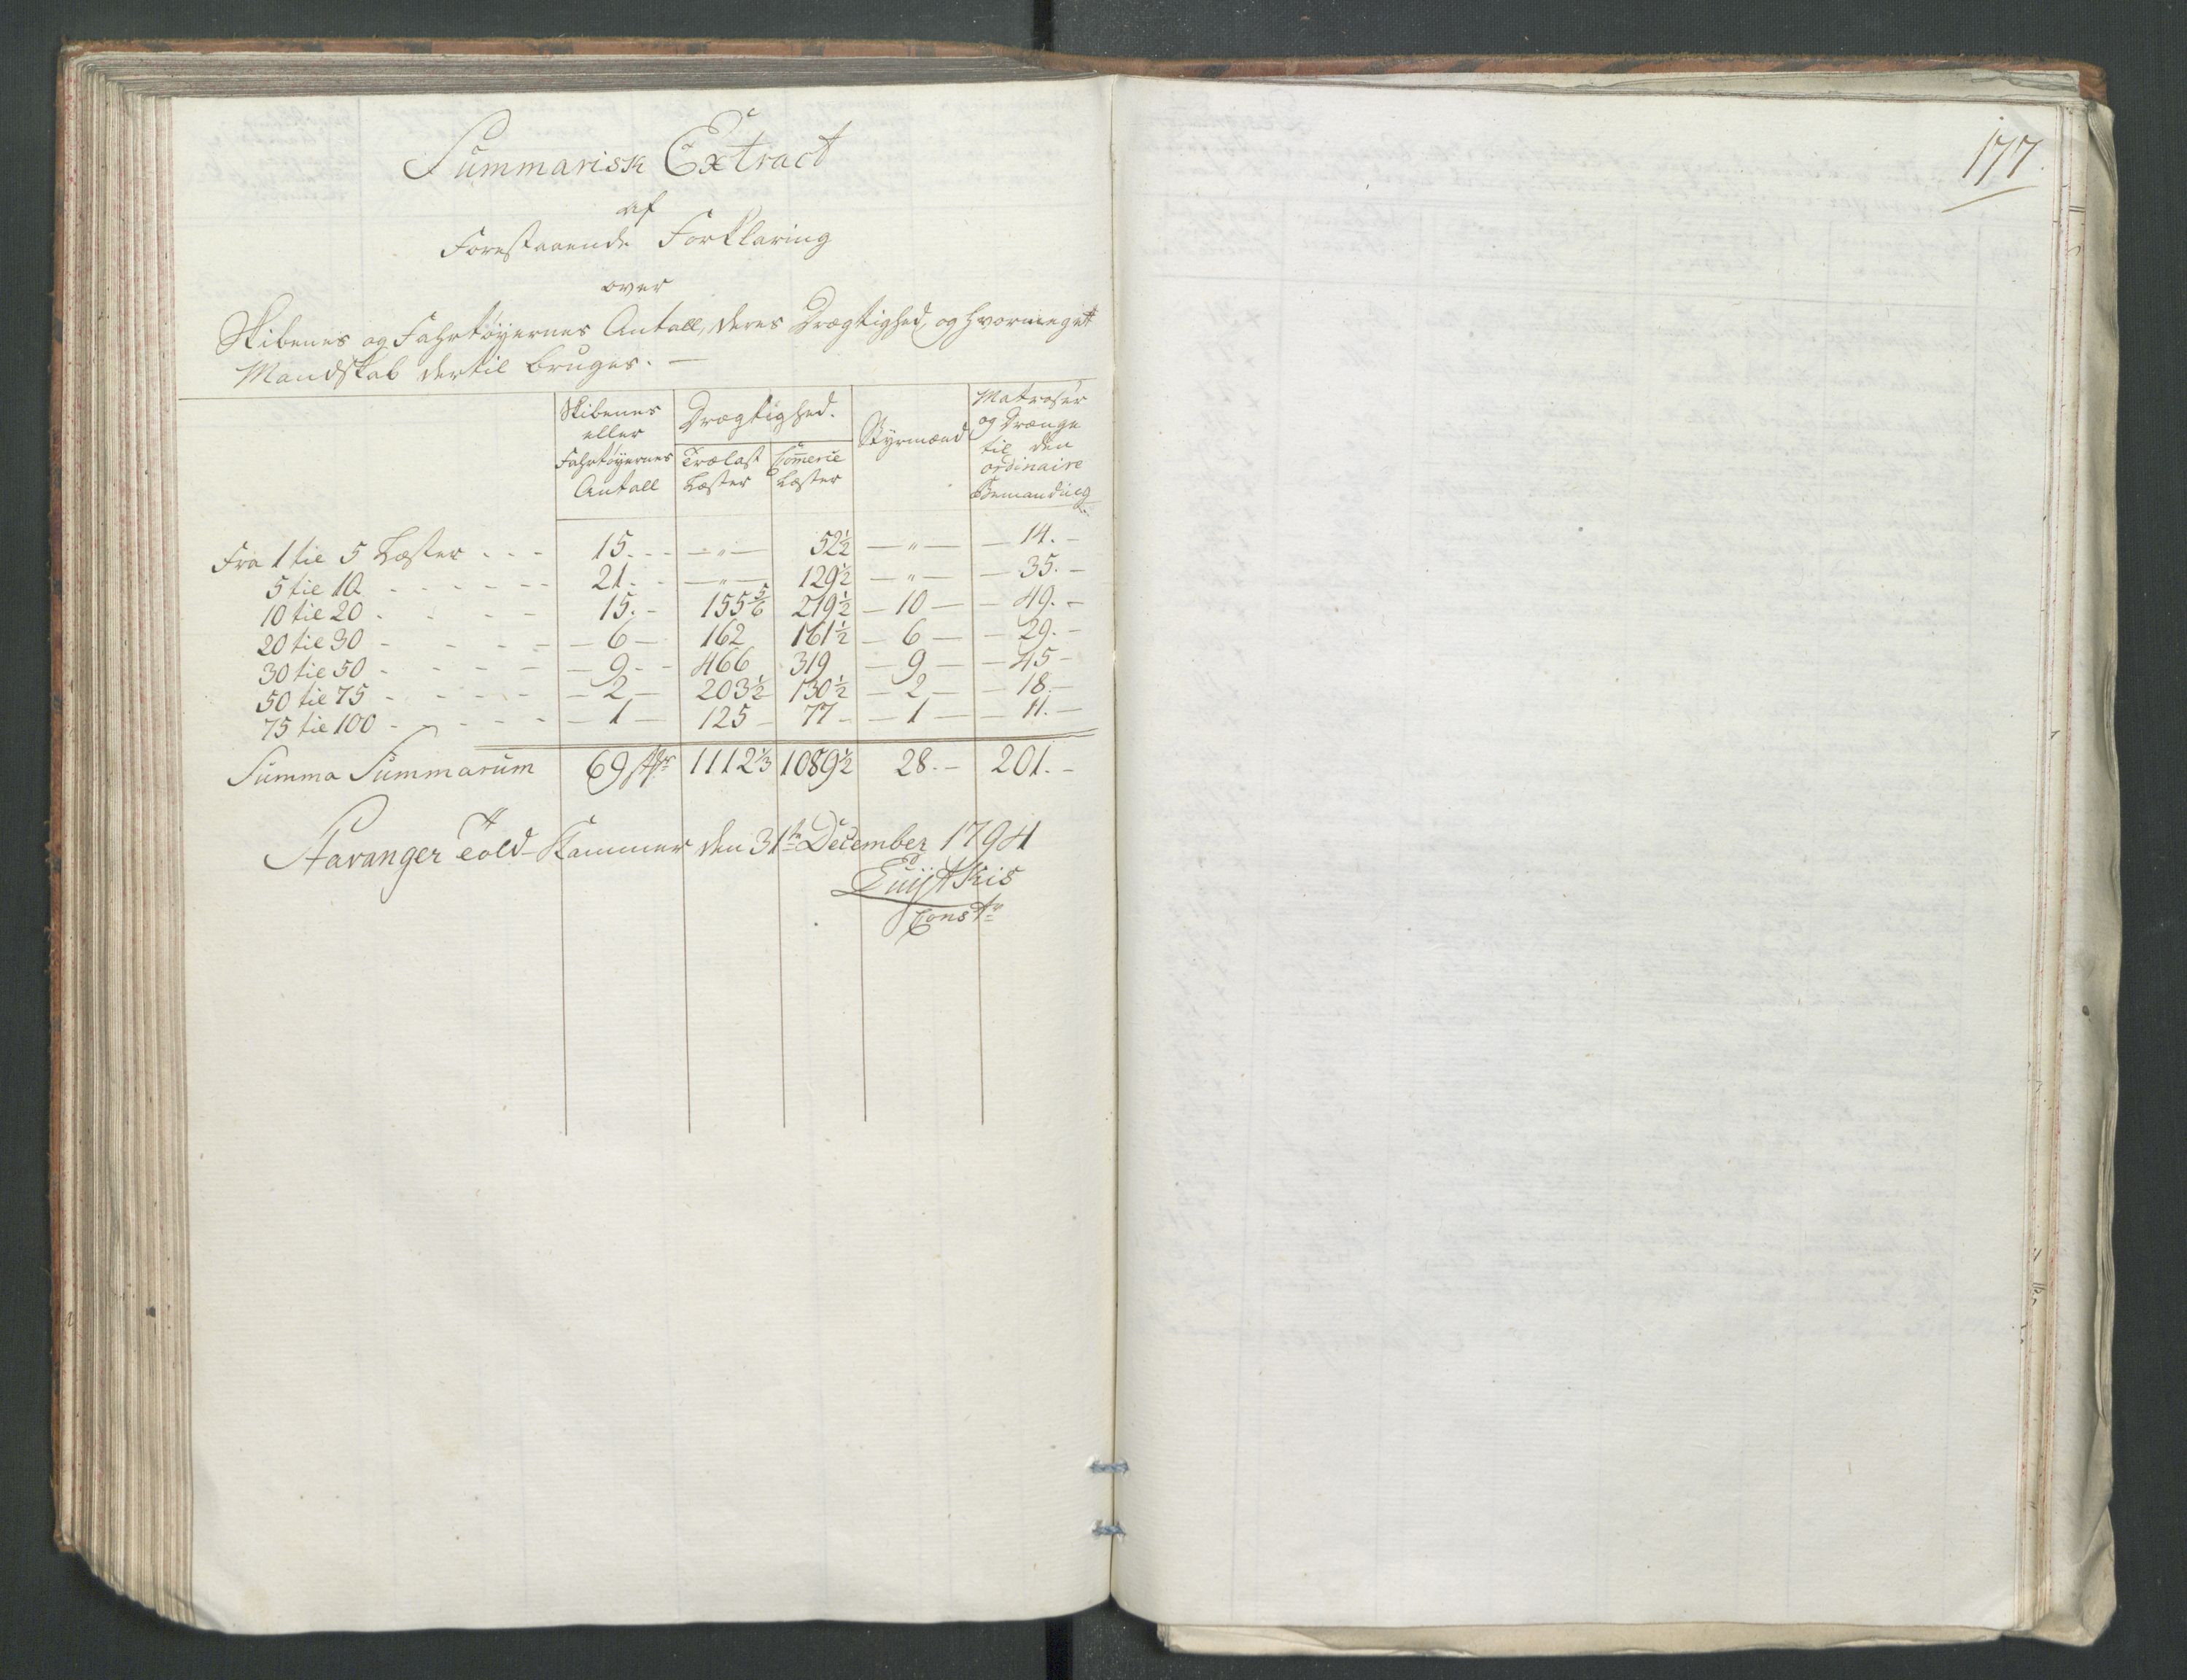 Summarisk Extract
af
Forestaaende Forklaring
over
Skibenes og Fahrtøyernes Antall, deres Drægtighed, og hvormeget
Mandskab dertil bruges. —
Skibenes eller Fahrtøyernes Antall | Drægtighed. | Trælast Læster | Commerce Læster | Styrmænd | Matroser og Drænge til den ordinaire Bemanding
Fra 1 til 5 Læster - - - 15. - - — " — 52½ — " — — 14. —
5 til 10 - - - - - 21 - - — " — 129½ — " — — 35. —
10 til 20 - - - - 15. - 155 5/6 219½ — 10 — — 49. —
20 til 30 - - - - — 6 — 162 161½ — 6 — — 29. —
30 til 50 - - - - — 9 - - 466 319 — 9 — — 45 —
50 til 75 - - - - — 2 — 203½ 130½ — 2 — — 18. —
75 til 100 - - - - — 1 — 125 — 77 — — 1 — — 11. —
Summa Summarum 69 1112⅓ 1089½ 28. — 201. —
Stavanger Told-Kammer den 31te December 1794
Const
177.